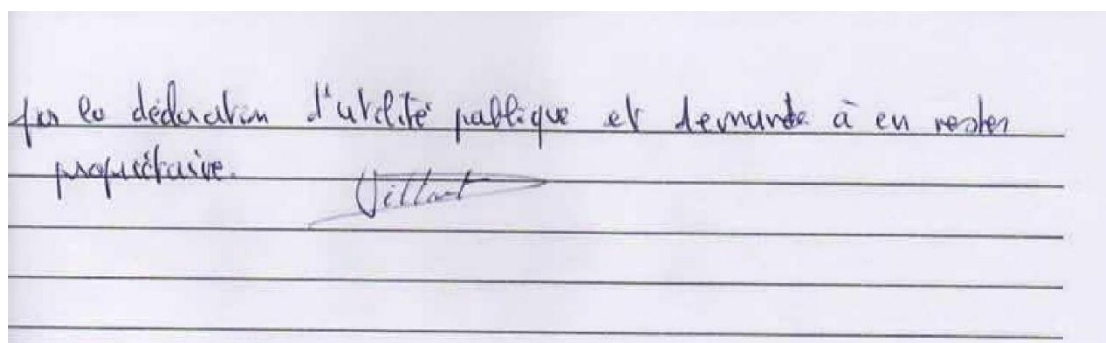 par la déclaration d'utilité publique et demande à en rester
propriétaire.
Villart